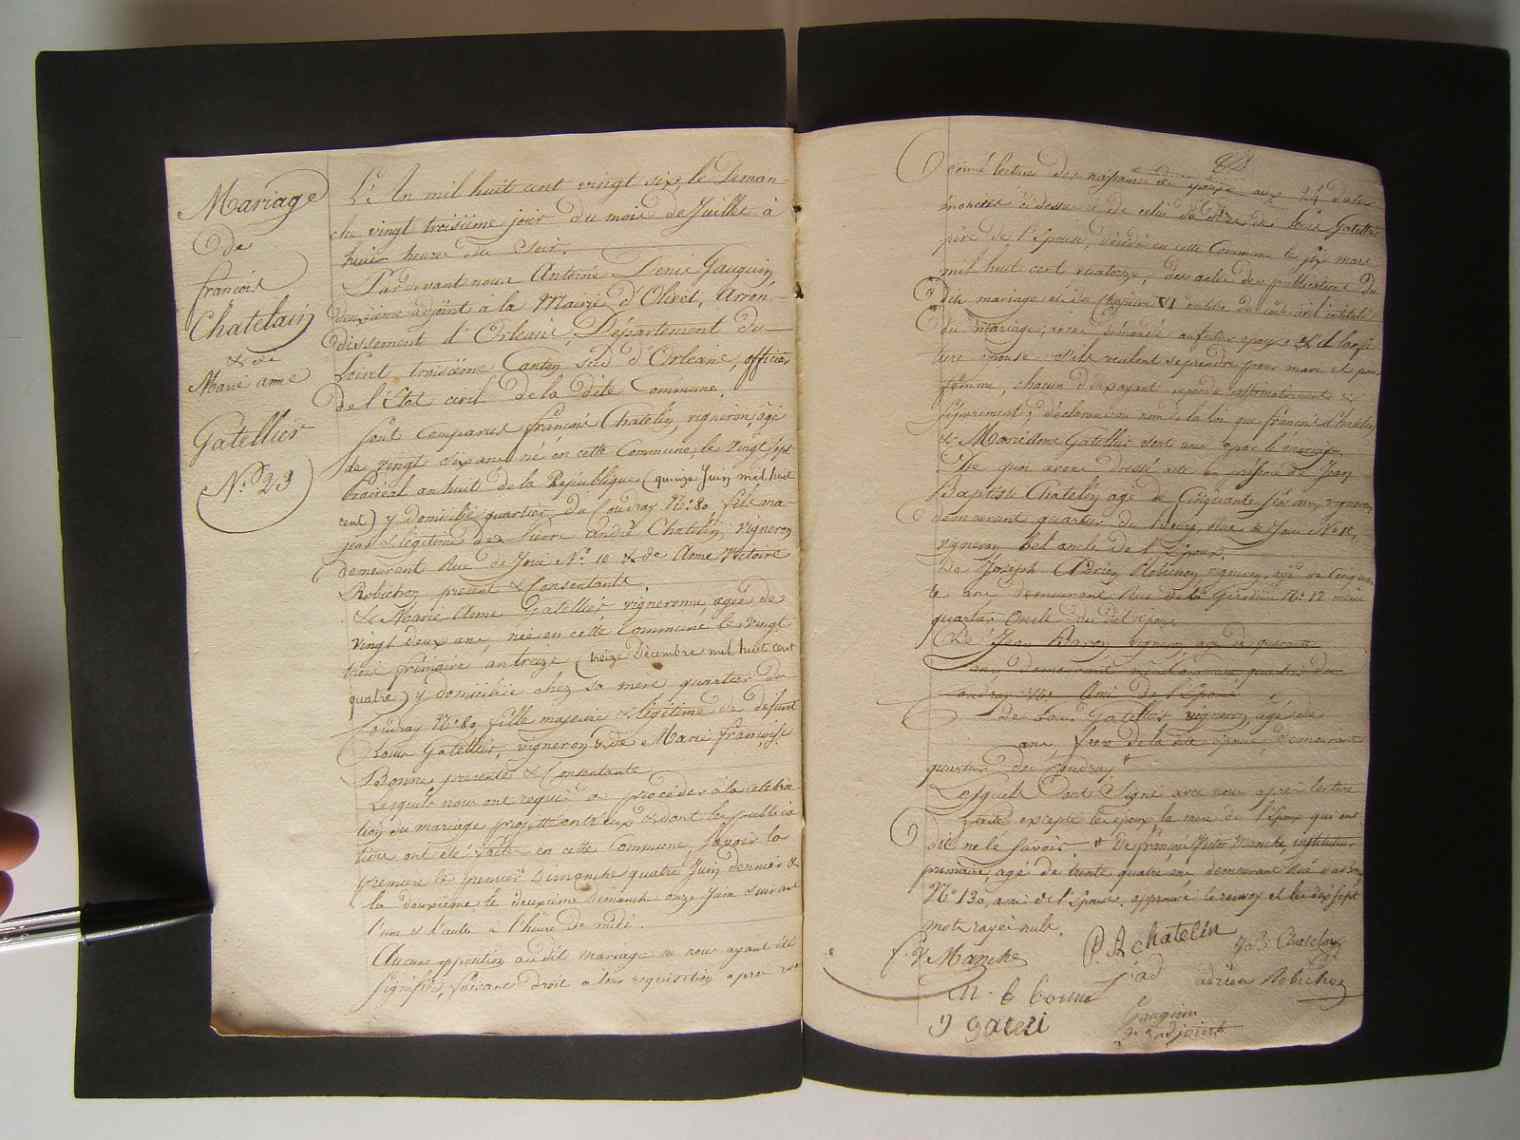 Mariage
de
françois
Chatelain
& de
Marie anne
Gatellier
N.º 23
L'An mil huit cent vingt six, le Diman-
che vingt troisième jour du mois de Juillet à
huit heures du Soir.
Pardevant nous Antoine Denis Gauguin
deuxième adjoint à la Mairie d'Olivet, Arron-
dissement d'Orléans, Département du
Loiret troisième Canton sud d'Orléans, officier
de l'Etat civil de la dite Commune.
Sont comparus françois Chatelin, vigneron, âgé
de vingt six ans né en cette Commune, le vingt sept
Prairéal an huit de la République (quinze Juin mil huit
cent) y domicilié quartier du Coudray N.º 80, fils ma-
jeur & légitime de Pierre André Chatelin, Vigneron
demeurant Rue de Joui N.º 10 & de Anne Victoire
Robichon present & Consentants.
& Marie Anne Gatellier vigneronne, agée de
vingt deux ans, née en cette Commune le vingt
trois frimaire an treize (treize Décembre mil huit cent
quatre) y domiciliée chez sa mère quartier du
Coudray N.º 80 fille majeure & légitime de défunt
Louis Gatellier, vigneron & de Marie françoise
Bonne presente & Consentante
Lesquels nous ont requis de procéder à la célébra-
tion du mariage projetté entr'eux & dont les publica-
tions ont été faites en cette Commune, savoir la
premiere le premier Dimanche quatre Juin dernier &
la deuxième le deuxième Dimanche onze Juin suivant
l'une & l'autre à l'heure de midi.
Aucune opposition au dit mariage ne nous ayant été
signifiée, faisant droit à leur requisition apres avoir
donné lecture des naissances des époux aux dates
enoncées ci dessus & de celui de décès de Louis Gatellier
père de l'Epouse, décédé en cette Commune le dix mars
mil huit cent quatorze, des actes de publications du
dit mariage et du Chapitre VI du code civil intitulé
du mariage, avons demandé au futur epoux & à la fu-
ture epouse s'ils veulent se prendre pour mari et pour
femme, chacun d'eux ayant repondu affirmativement &
séparement; déclarons au nom de la loi que françois Chatelin
& Marie Anne Gatellier sont unis par le mariage.
De quoi avons dressé acte en présence de Jean
Baptiste Chatelin agé de Cinquante six ans, vigneron
demeurant quartier du Bourg, rue de Joui N.º
vigneron bel oncle de l'Epoux,
De Joseph Adrien Robichon vigneron, agé de Cinquan-
te ans demeurant Rue N.º 12 même
quartier Oncle du dit époux
De Jean vigneron, agé de quarante
ans, demeurant quartier du
Coudray Ami de l'Epoux
de Louis Gatellier, vigneron, agé de
ans, frere de la dite épouse, demeurant
quartier du Coudray *
Lesquels ont signé avec nous après lecture
faite excepté les époux la mère de l'Epoux qui ont
dit ne le savoir. * De françois Victor Manche, instituteur
primaire, agé de trente quatre ans demeurant Rue
N.º 130, ami de l'Epouse, approuvé le renvoi et les dix sept
mots rayés nuls.
f. V. Manche
P. A chatelin
J. B. Chatelin
adrien Robichon
M. f bonne
Gauguin
gateli
2e adjoint